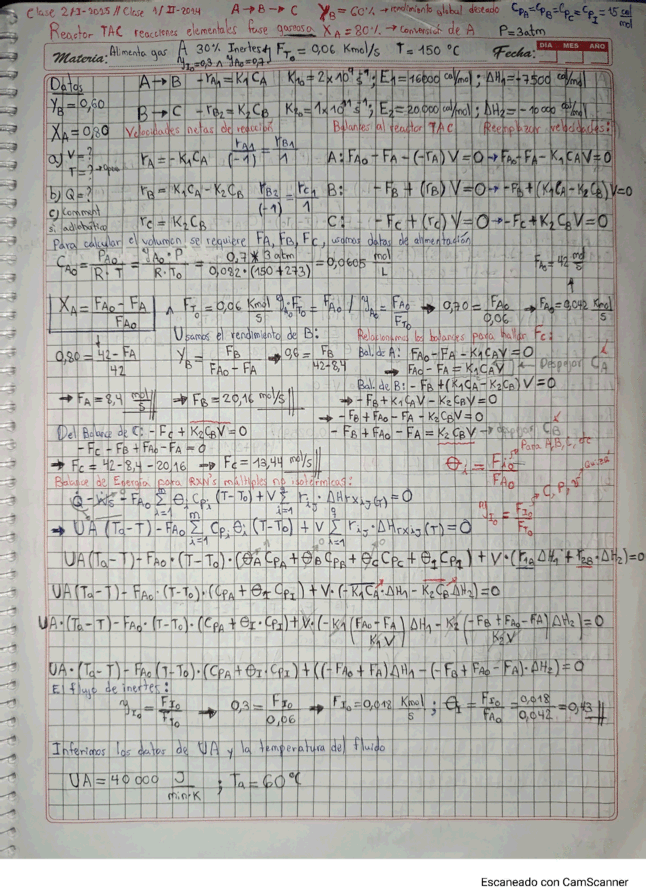 Clase 2/I-2025 // Clase 1/II-2014 A → B → C Y_B = 60% → rendimiento global deseado C_PA = C_PB = C_PC = C_PI = 15 cal/mol
Reactor TAC reacciones elementales fase gaseosa X_A = 80% → conversión de A P = 3atm
Materia: Alimenta gas A 30% Inertes, F_T0 = 0,06 Kmol/s T = 150 °C Fecha: DIA MES AÑO
y_I0 = 0,3 ∧ y_A0 = 0,7
Datos A → B -r_A1 = K1 C_A K_10 = 2x10^9 s^-1; E1 = 16000 cal/mol; ΔH1 = -7500 cal/mol
Y_B = 0,60 B → C -r_B2 = K2 C_B K_20 = 1x10^11 s^-1; E2 = 20000 cal/mol; ΔH2 = -10000 cal/mol
X_A = 0,80 Velocidades netas de reacción Balances al reactor TAC Reemplazar velocidades:
a) V = ? r_A = -K1 C_A r_A1/(-1) = r_B1/1 A: F_A0 - F_A - (-r_A) V = 0 → F_A0 - F_A - K1 C_A V = 0
T = ?
b) Q = ? r_B = K1 C_A - K2 C_B r_B2/(-1) = r_C1/1 B: -F_B + (r_B) V = 0 → -F_B + (K1 C_A - K2 C_B) V = 0
c) Coment si adiabático r_C = K2 C_B C: -F_C + (r_C) V = 0 → -F_C + K2 C_B V = 0
Para calcular el volumen se requiere F_A, F_B, F_C, usamos datos de alimentación
C_A0 = P_A0/(R·T) = y_A0·P/(R·T_0) = 0,7 * 3 atm/(0,082·(150+273)) = 0,0605 mol/L F_A0 = 42 mol/s
X_A = (F_A0 - F_A)/F_A0 ∧ F_T0 = 0,06 Kmol/s y_A0·F_T0 = F_A0 / y_A0 = F_A0/F_T0 → 0,70 = F_A0/0,06 → F_A0 = 0,042 Kmol/s
Usamos el rendimiento de B: Relacionamos los balances para hallar F_C:
0,80 = (42 - F_A)/42 Y_B = F_B/(F_A0 - F_A) → 0,6 = F_B/(42 - 8,4) Bal. de A: F_A0 - F_A - K1 C_A V = 0
→ F_A0 - F_A = K1 C_A V Despejar C_A
Bal. de B: -F_B + (K1 C_A - K2 C_B) V = 0
→ F_A = 8,4 mol/s → F_B = 20,16 mol/s → -F_B + K1 C_A V - K2 C_B V = 0
→ -F_B + F_A0 - F_A - K2 C_B V = 0
Del Balance de C: -F_C + K2 C_B V = 0 -F_B + F_A0 - F_A = K2 C_B V → despejar C_B
-F_C - F_B + F_A0 - F_A = 0 Para A, B, C, etc
→ F_C = 42 - 8,4 - 20,16 → F_C = 13,44 mol/s θ_i = F_i0/F_A0
Balance de Energía para RXN's múltiples no isotérmicas: y_I0 = F_I0/F_T0
Q - Ws - F_A0 Σ_{i=1}^{m} θ_i Cp_i (T - T_0) + V Σ_{i=1}^{q} r_ij · ΔH_rxij(T) = 0
→ UA (Ta - T) - F_A0 Σ_{i=1}^{m} Cp_i θ_i (T - T_0) + V Σ_{i=1}^{q} r_ij · ΔH_rxij(T) = 0
UA (Ta - T) - F_A0 · (T - T_0) · (θ_A C_PA + θ_B C_PB + θ_C C_PC + θ_I C_PI) + V · (r_1A ΔH1 + r_2B · ΔH2) = 0
UA (Ta - T) - F_A0 · (T - T_0) · (C_PA + θ_I C_PI) + V · (-K1 C_A · ΔH1 - K2 C_B ΔH2) = 0
UA · (Ta - T) - F_A0 · (T - T_0) · (C_PA + θ_I · C_PI) + V · (-K1 ((F_A0 - F_A)/(K1 V)) ΔH1 - K2 ((-F_B + F_A0 - F_A)/(K2 V)) ΔH2) = 0
UA · (Ta - T) - F_A0 (T - T_0) · (C_PA + θ_I · C_PI) + ((-F_A0 + F_A) ΔH1 - (-F_B + F_A0 - F_A) · ΔH2) = 0
El flujo de inertes:
y_I0 = F_I0/F_T0 → 0,3 = F_I0/0,06 → F_I0 = 0,018 Kmol/s ; θ_I = F_I0/F_A0 = 0,018/0,042 = 0,43
Inferimos los datos de UA y la temperatura del fluido
UA = 40 000 J/min·K ; Ta = 60 °C
Escaneado con CamScanner